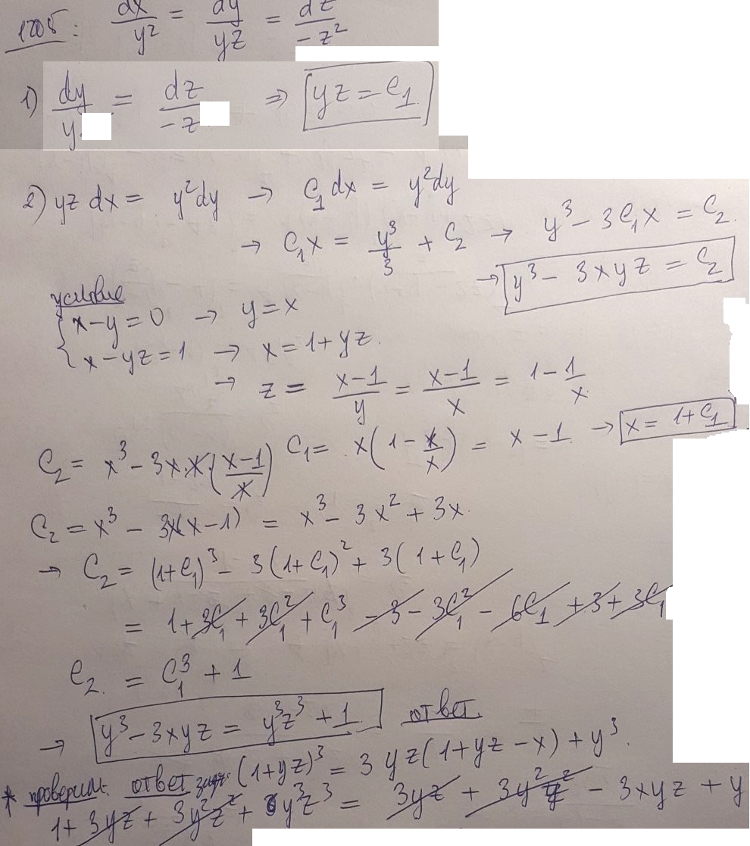 1205: dx/y² = dy/yz = dz/-z²
1) dy/y = dz/-z ⇒ yz = C₁
2) yz dx = y²dy → C₁dx = y²dy
→ C₁x = y³/3 + C₂ → y³ - 3C₁x = C₂
→ y³ - 3xyz = C₂
условие
{ x-y=0 → y=x
{ x-yz=1 → x=1+yz.
→ z = x-1/y = x-1/x = 1-1/x.
C₂ = x³-3x·x·(x-1/x) C₁ = x(1-x/x) = x-1 → x=1+C₁
C₂ = x³ - 3x(x-1) = x³ - 3x² + 3x
→ C₂ = (1+C₁)³ - 3(1+C₁)² + 3(1+C₁)
= 1+3C₁+3C₁²+C₁³ -3 -3C₁² - 6C₁ +3+3C₁
C₂ = C₁³ + 1
→ y³-3xyz = y³z³ + 1 ответ.
* проверим. ответ (1+yz)³ = 3yz(1+yz-x)+y³.
1+3yz+3y²z²+y³z³ = 3yz + 3y²z² - 3xyz + y